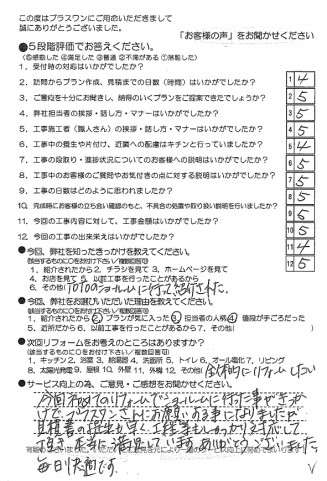 この度はプラスワンにご用命いただきまして
誠にありがとうございました。
「お客様の声」をお聞かせください
●5段階評価でお答えください。
(⑤感動した ④満足した ③普通 ②不満がある ①落胆した)
1. 受付時の対応はいかがでしたか? 1 4
2. 訪問からプラン作成、見積までの日数(時間)はいかがでしたか? 2 5
3. ご意向を十分にお聞きし、納得のいくプランをご提案できたでしょうか? 3 5
4. 弊社担当者の挨拶・話し方・マナーはいかがでしたか? 4 5
5. 工事施工者(職人さん)の挨拶・話し方・マナーはいかがでしたか? 5 5
6. 工事中の養生や片付け、近隣への配慮はキチンと行っていましたか? 6 4
7. 工事の段取り・進捗状況についてのお客様への説明はいかがでしたか? 7 5
8. 工事中のお客様のご質問やお気付きの点に対する説明はいかがでしたか? 8 5
9. 工事の日数はどのように思われましたか? 9 5
10. 完成時にお客様の立ち合い確認のもと、不具合の処置や取り扱い説明を行いましたか? 10 5
11. 今回の工事内容に対して、工事金額はいかがでしたか? 11 4
12. 今回の工事の出来栄えはいかがでしたか? 12 5
●今回、弊社を知ったきっかけを教えてください。
(該当するものに○をお付け下さい/複数回答可)
1. 紹介されたから 2. チラシを見て 3. ホームページを見て
4. お店を見て 5. 以前工事を行ったことがあるから
6. その他( TOTOのショールームに行って紹介された
●今回、弊社をお選びいただいた理由を教えてください。
(該当するものに○をお付け下さい/複数回答可)
1. 紹介されたから ② プランが気に入った ③ 担当者の人柄 ④ 値段が手ごろだった
5. 近所だから 6. 以前工事を行ったことがあるから 7. その他(
●次回リフォームをお考えのところはありますか?
(該当するものに○をお付け下さい/複数回答可)
1. キッチン 2. 浴室 3. 給湯器 4. 洗面所 5. トイレ 6. オール電化 7. リビング
8. 太陽光発電 9. 屋根 10. 外壁 11. 外構 12. その他( 全体的にリフォームしたい
●サービス向上の為、ご意見・ご感想をお聞かせください。
今回初めてのリフォームでショールームに行った事がきっか
けで、プラスワンさんにお願いする事になりましたが
見積書の提出も早く、工程等もしっかり対応して
頂き、本当に満足しています。ありがとうございました。
毎日快適です。